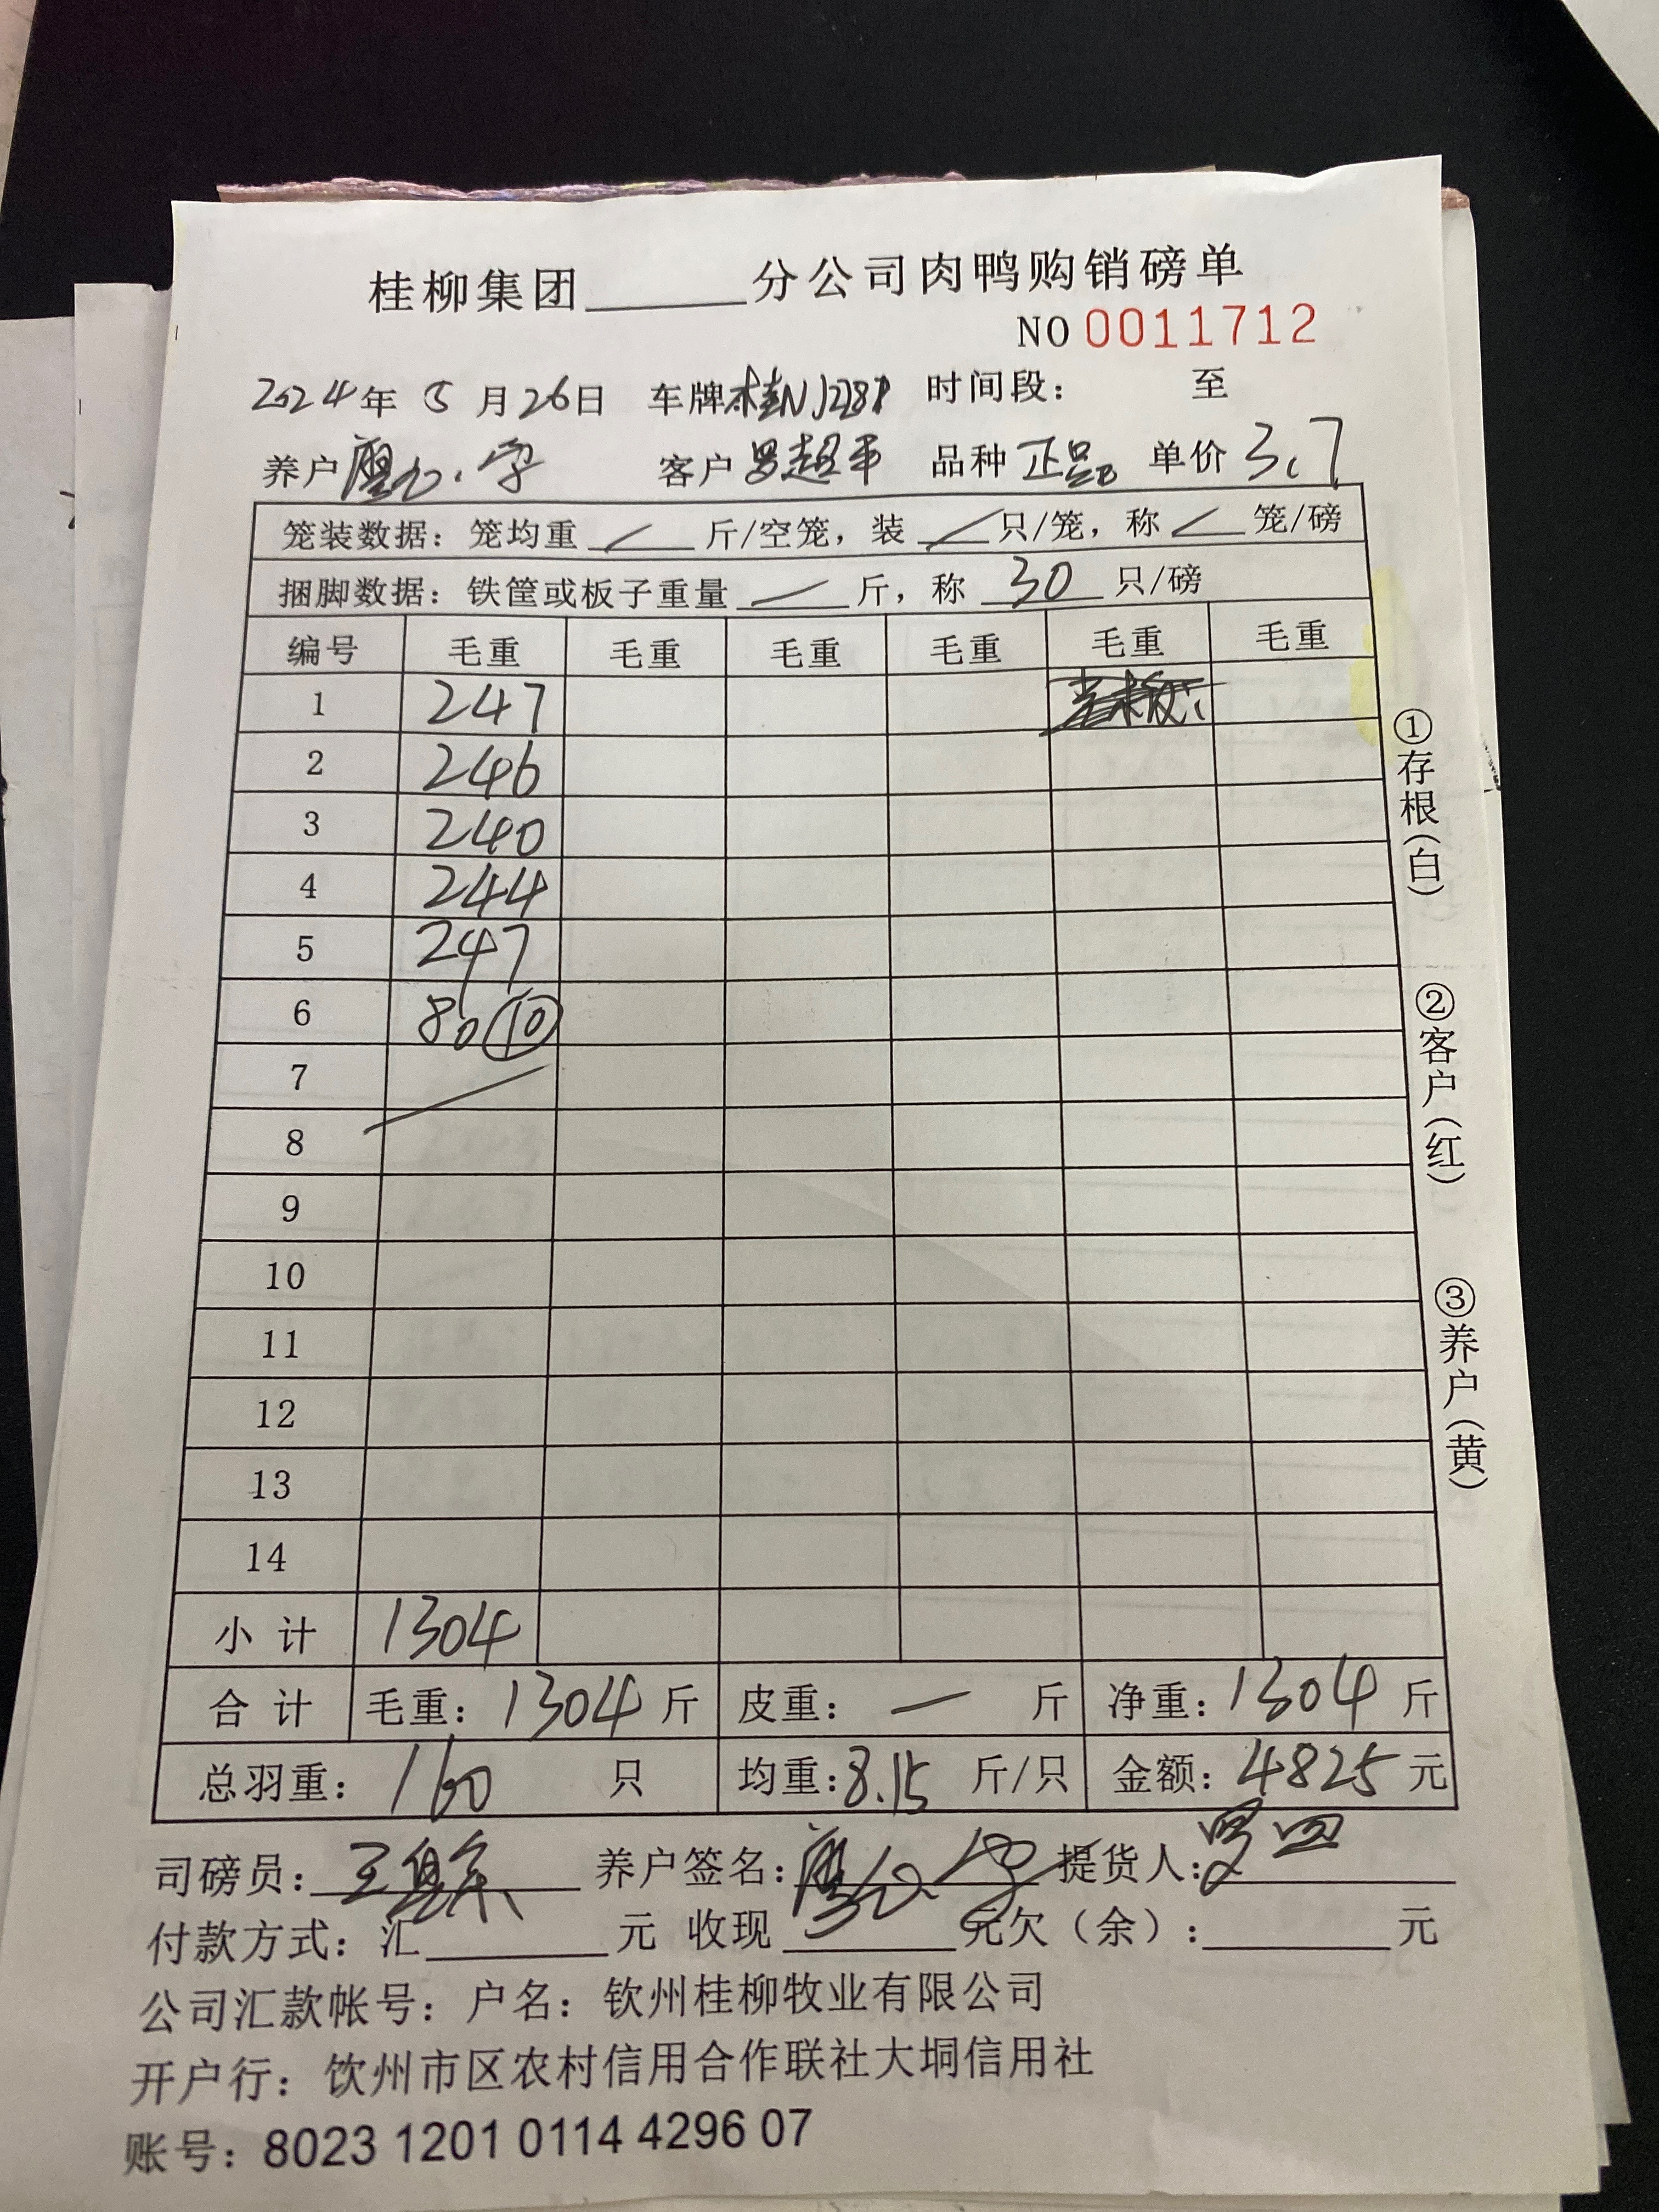 桂柳集团______分公司肉鸭购销磅单
NO 0011712
2024年 5月26日 车牌 桂N 时间段： 至
养户 客户 罗超平 品种 正品 单价 3.7
笼装数据：笼均重 / 斤/空笼，装 / 只/笼，称 / 笼/磅
捆脚数据：铁筐或板子重量 — 斤，称 30 只/磅
编号 毛重 毛重 毛重 毛重 毛重 毛重
1 247
2 246
3 240
4 244
5 247
6 80 ⑩
7
8
9
10
11
12
13
14
小计 1304
合计 毛重：1304斤 皮重：— 斤 净重：1304斤
总羽重：160 只 均重：8.15 斤/只 金额：4825元
司磅员： 养户签名： 提货人：罗四
付款方式：汇______元 收现______元欠（余）：______元
公司汇款帐号：户名：钦州桂柳牧业有限公司
开户行：饮州市区农村信用合作联社大垌信用社
账号：8023 1201 0114 4296 07
①存根（白） ②客户（红） ③养户（黄）